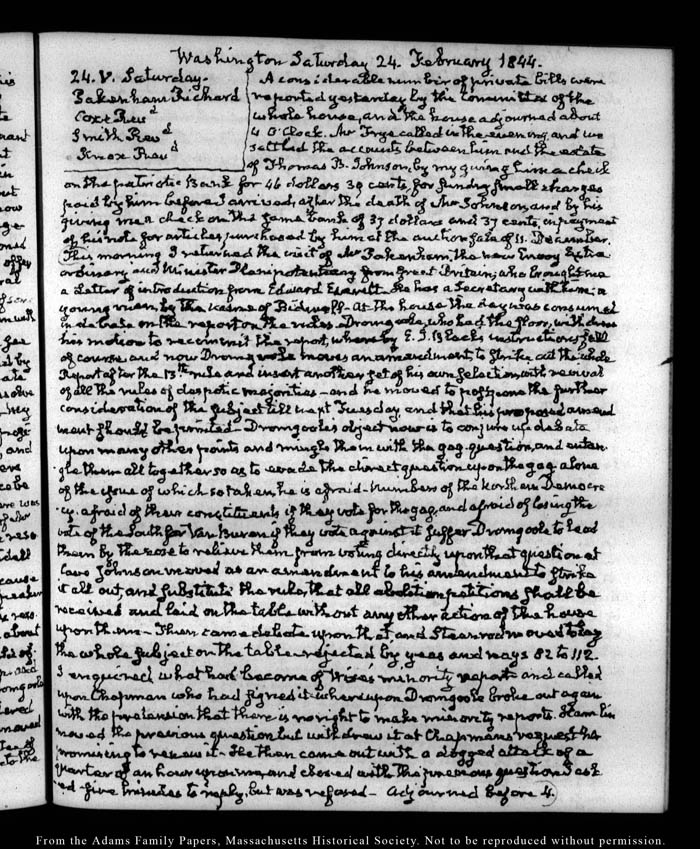 Washington Saturday 24. February 1844.
24. V. Saturday.
Pakenham Richard
Cox Rev.d
Smith Rev.d
Knox Rev.d
A considerable number of private bills were
reported yesterday by the Committee of the
whole house, and the house adjourned about
4 O'Clock. Mr Frye called in the evening, and we
settled the accounts between him and the estate
of Thomas B. Johnson, by my giving him a check
on the patriotic Bank for 46 dollars 39 cents, for sundry small charges
paid by him before I arrived, after the death of Mr Johnson, and by his
giving me a check on the same bank of 37 dollars and 37 cents, in payment
of his note for articles purchased by him at the auction sale of 11. December.
This morning I returned the visit of Mr Pakenham, the new Envoy Extra-
ordinary and Minister Plenipotentiary from Great Britain; who brought me
a Letter of introduction from Edward Everett. He has a Secretary with him; a
young man by the name of Bidwell - At the house the day was consumed
in debate on the report on the rules. Dromgoole, who had the floor, withdrew
his motion to recommit the report, whereby E. J. Black's instructions fell
of course and now Dromgoole moves an amendment, to strike out the whole
Report after the 13th rule and insert another set of his own selection, with revival
of all the rules of despotic majorities - and he moved to postpone the further
consideration of the subject till next Tuesday, and that his proposed amend
ment should be printed - Dromgoole's object now is to conjure up debate
upon many other points and mingle them with the gag-question, and entan-
gle them all together so as to evade the direct question upon the gag alone
of the issue of which so taken, he is afraid - numbers of the Northern Democra-
cy, afraid of their constituents if they vote for the gag, and afraid of losing the
vote of the South for Van Buren if they vote against it suffer Dromgoole to lead
them by the nose to relieve them from voting directly upon that question at
Cave Johnson moved as an amendment to his amendment to strike
it all out, and substitute the rule, that all abolition petitions shall be
received and laid on the table without any other action of the house
upon them - Then came debate upon that and Steenrod moved to lay
the whole subject on the table rejected by yeas and nays 82 to 112.
I enquired what had become of Wise's minority report and called
upon Chapman who had signed it - whereupon Dromgoole broke out again
with the pretension that there is no right to make minority reports. Hamlin
moved the previous question but withdrew it at Chapman's request his
promising to renew it - He then came out with a dogged attack of a
quarter of an hour upon me, and closed with the previous question I ask
ed five minutes to reply, but was refused - Adjourned before 4.
From the Adams Family Papers, Massachusetts Historical Society. Not to be reproduced without permission.